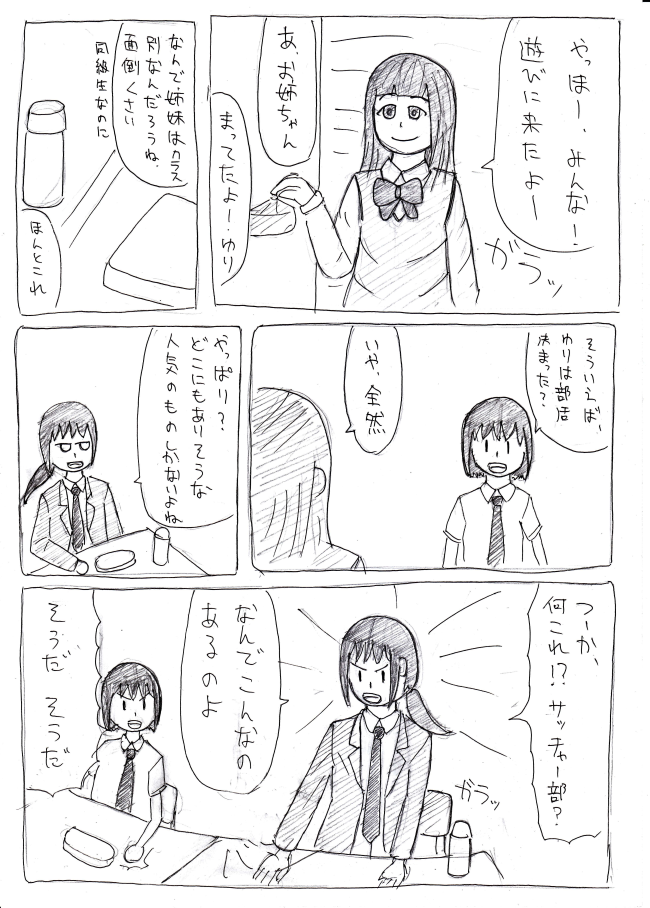 やっほー、みんな！
遊びに来たよー
ガラッ
あ、お姉ちゃん
まってたよー・ゆり
なんで姉妹はクラス
別なんだろうね、
面倒くさい
同級生なのに
ほんとこれ
そういえば、
ゆりは部活
決まった？
いや、全然
やっぱり？
どこにもありそうな
人気のものしかないよね
つーか、
何これ!? サッチャー部？
ガラッ
なんでこんなの
あるのよ
そうだ そうだ